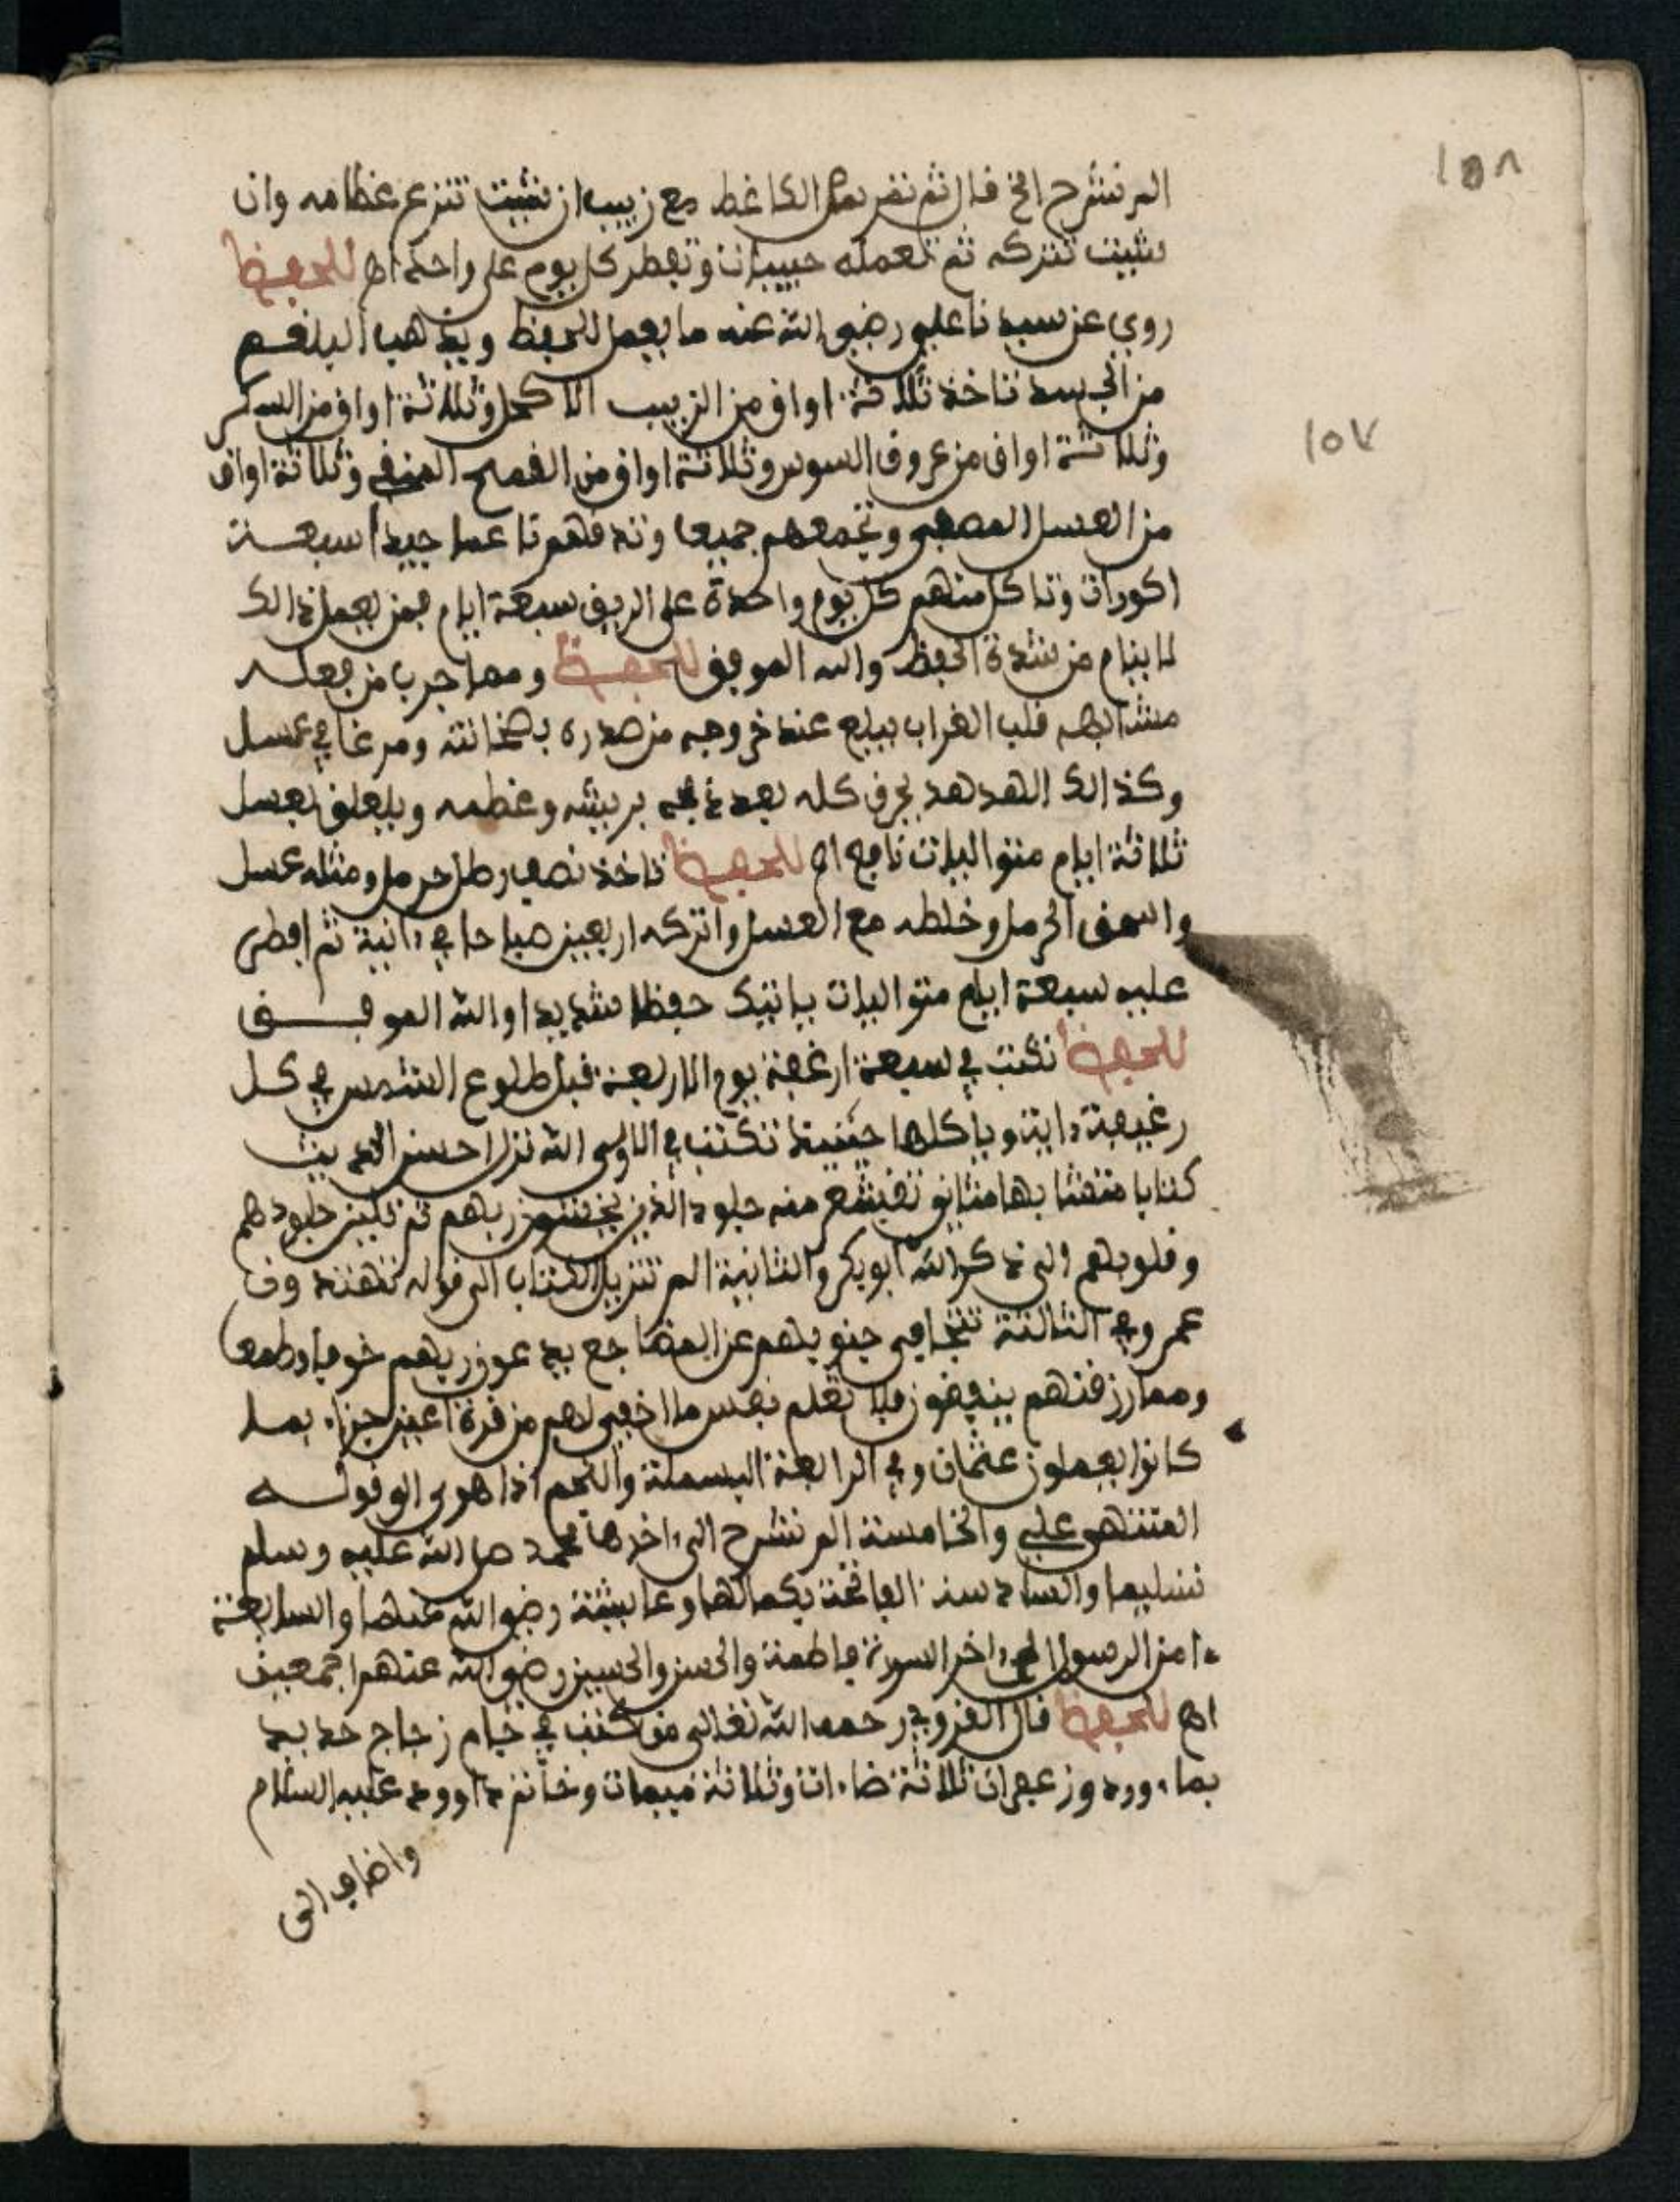 ١٥٨
الم نشرح الخ قال ثم الكاغط مع زبيب ان شيت تنزع عظامه وان
شيت تتركه ثم تعمله حبيبات وتفطر كل يوم على واحدة اه للحفظ
روي عن سيدنا علي رضي الله عنه ما يعمل للحفظ ويذهب البلغم
من الجسد تاخذ ثلاثة اواق من الزبيب الاكحل وثلاثة اواق من السكر
١٥٧
وثلاثة اواق من عروق السوس وثلاثة اواق من القمح المنقي وثلاثة اواق
من العسل المصفى وتجمعهم جميعا وتدقهم ناعما جيدا سبعة
اكورات وتاكل منهم كل يوم واحدة على الريق سبعة ايام فمن يعمل ذالك
لا ينام من شدة الحفظ والله الموفق للحفظ ومما جرب من فعله
مشايخه قلب الغراب يبلع عند خروجه من صدره بسخانته ومرغا في عسل
وكذالك الهدهد يحرق كله بعد ذبحه بريشه وعظمه ويلعق بعسل
ثلاثة ايام متواليات نافع اه للحفظ تاخذ نصف رطل حرمل ومثله عسل
واسحق الحرمل وخلطه مع العسل واتركه اربعين صباحا في ءانية ثم افطر
عليه سبعة ايام متواليات ياتيك حفظا شديدا والله الموفق
للحفظ تكتب في سبعة ارغفة يوم الاربعة قبل طلوع الشمس في كل
رغيفة ءاية وياكلها حينيذ تكتب في الاولى الله نزل احسن الحديث
كتابا متشابها مثاني تقشعر منه جلود الذين يخشون ربهم ثم تلين جلودهم
وقلوبهم الى ذكر الله ابوبكر والثانية الم تنزيل الكتاب الى قوله تهتدون
عمر وفي الثالثة تتجافى جنوبهم عن المضاجع يدعون ربهم خوفا وطمعا
ومما رزقنهم ينفقون فلا تعلم نفس ما اخفي لهم من قرة اعين جزاء بما
كانوا يعملون عثمان وفي الرابعة البسملة والنجم اذا هوى الى قوله
المنتهى علي والخامسة الم نشرح الى ءاخرها محمد صلى الله عليه وسلم
تسليما والسادسة الفاتحة بكمالها وعايشة رضي الله عنها والسابعة
ءامن الرسول الى ءاخر السورة فاطمة والحسن والحسين رضي الله عنهم اجمعين
اه للحفظ قال القزويني رحمه الله تعالى من كتب في جام زجاج حديد
بماء ورد وزعفران ثلاثة ضاءات وثلاثة ميمات وخاتم داوود عليه السلام
واضاف الى